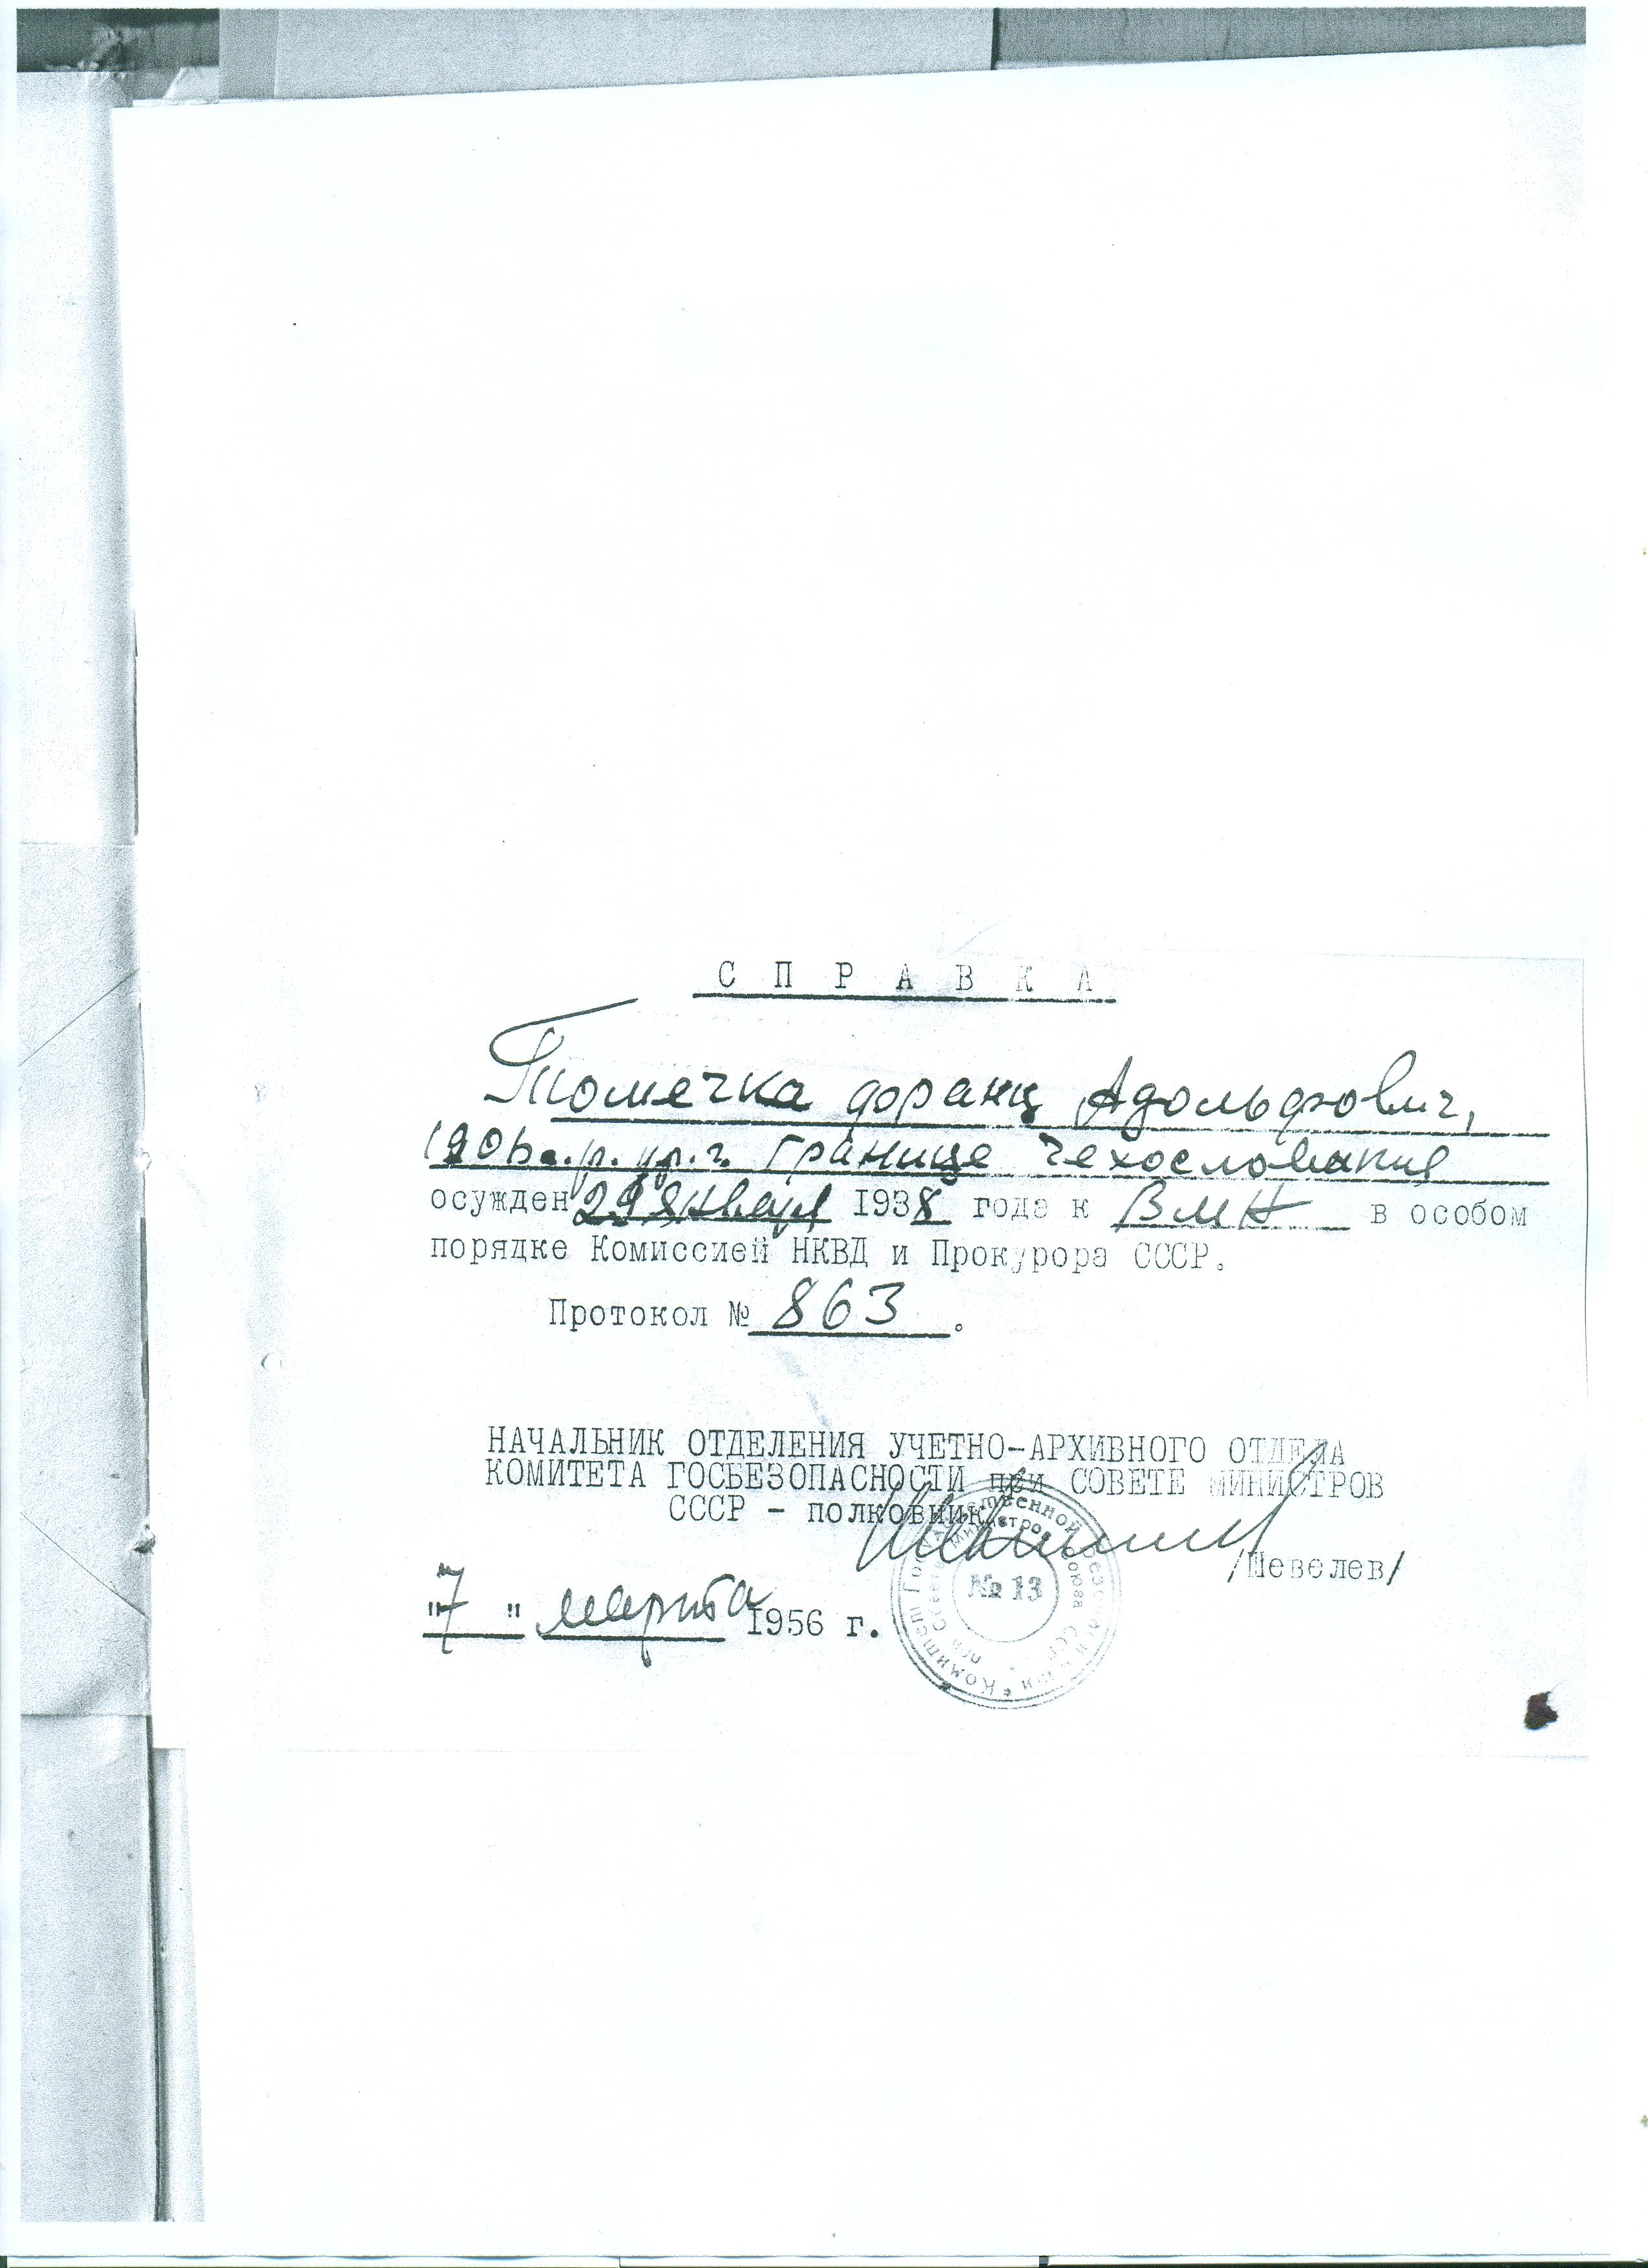 С П Р А В К А
Томечка Франц Адольфович,
1906 г.р. ур. г. Границе Чехословакия
осужден 29 января 1938 года к ВМН в особом
порядке Комиссией НКВД и Прокурора СССР.
Протокол № 863.
НАЧАЛЬНИК ОТДЕЛЕНИЯ УЧЕТНО-АРХИВНОГО ОТДЕЛА
КОМИТЕТА ГОСБЕЗОПАСНОСТИ при СОВЕТЕ МИНИСТРОВ
СССР - полковник
/Шевелев/
"7" марта 1956 г.
Комитет Государственной безопасности
при Совете Министров Союза ССР
№ 13